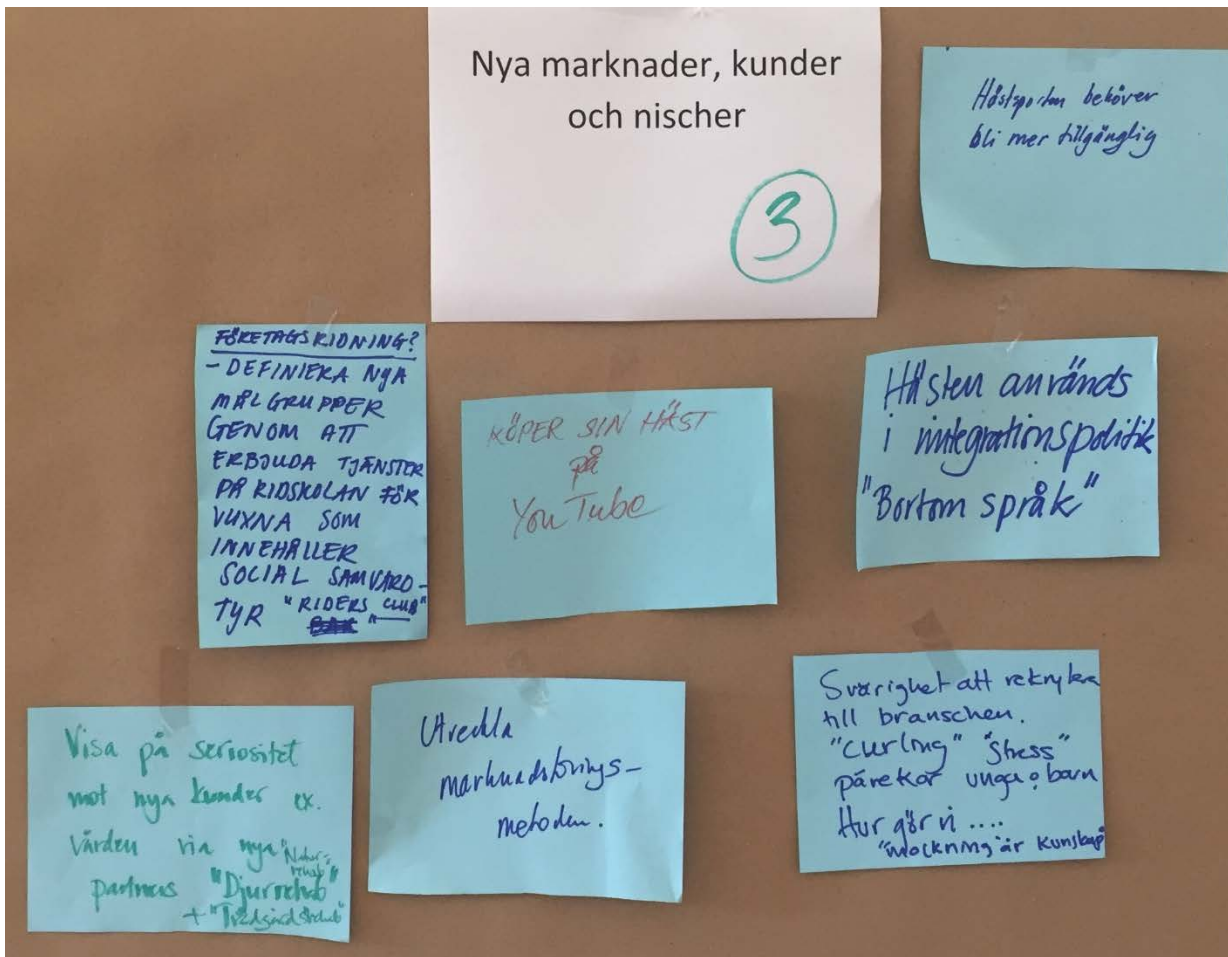 Nya marknader, kunder
och nischer
3
Hästsporten behöver
bli mer tillgänglig
FÖRETAGSRIDNING?
- DEFINIERA NYA
MÅLGRUPPER
GENOM ATT
ERBJUDA TJÄNSTER
PÅ RIDSKOLAN FÖR
VUXNA SOM
INNEHÅLLER
SOCIAL SAMVARO -
TYP "RIDERS CLUB"
KÖPER SIN HÄST
på
YouTube
Hästen används
i integrationspolitik
"Bortom språk"
Visa på seriositet
mot nya kunder ex.
Vården via nya "Natur-
rehab"
partners "Djurrehab"
+ "Trädgårdsrehab"
Utveckla
marknadsförings-
metoden.
Svårighet att rekrytera
till branschen.
"curling" "stress"
påverkar unga o barn
Hur gör vi ....
"mockning är kunskap"